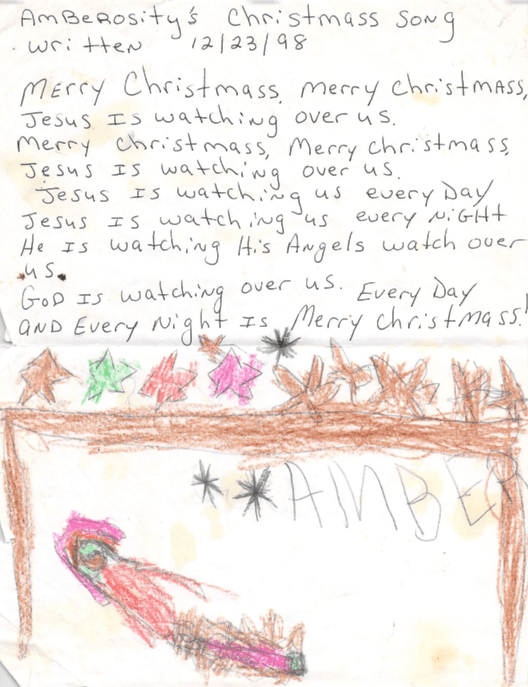 AmBerosity's Christmass Song
written 12/23/98
Merry Christmass, merry christmASS,
Jesus Is watching over us.
Merry christmass, Merry christmass,
Jesus Is watching over us.
Jesus Is watching us every Day
Jesus Is watching us every NiGHt
He Is watching His Angels watch over
us.
GoD Is watching over us. Every Day
AND Every Night Is Merry Christmass!
AMBER